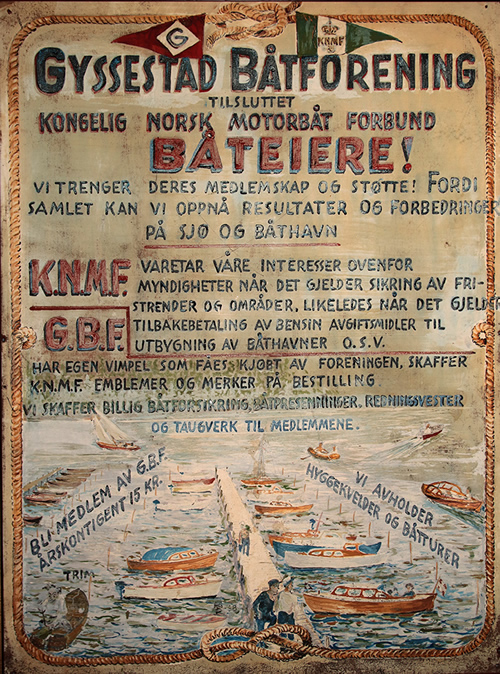 G
K.N.M.F.
GYSSESTAD BÅTFORENING
TILSLUTTET
KONGELIG NORSK MOTORBÅT FORBUND
BÅTEIERE!
VI TRENGER DERES MEDLEMSKAP OG STØTTE! FORDI
SAMLET KAN VI OPPNÅ RESULTATER OG FORBEDRINGER
PÅ SJØ OG BÅTHAVN
K.N.M.F. VARETAR VÅRE INTERESSER OVENFOR
MYNDIGHETER NÅR DET GJELDER SIKRING AV FRI-
STRENDER OG OMRÅDER, LIKELEDES NÅR DET GJELDER
G.B.F. TILBAKEBETALING AV BENSIN AVGIFTSMIDLER TIL
UTBYGNING AV BÅTHAVNER O.S.V.
HAR EGEN VIMPEL SOM FÅES KJØBT AV FORENINGEN, SKAFFER
K.N.M.F. EMBLEMER OG MERKER PÅ BESTILLING
VI SKAFFER BILLIG BÅTFORSIKRING, BÅTPRESENNINGER, REDNINGSVESTER
OG TAUGVERK TIL MEDLEMMENE.
BLI MEDLEM AV G.B.F.
ÅRSKONTIGENT 15 KR.
VI AVHOLDER
HYGGEKVELDER OG BÅTTURER
TRIM